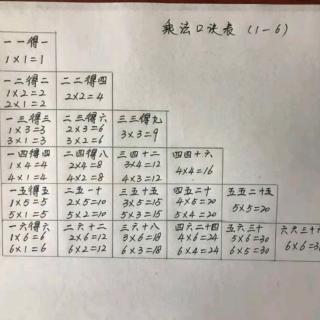 乘法口诀表（1-6）
一一得一
1×1=1
一二得二 二二得四
1×2=2 2×2=4
2×1=2
一三得三 二三得六 三三得九
1×3=3 2×3=6 3×3=9
3×1=3 3×2=6
一四得四 二四得八 三四十二 四四十六
1×4=4 2×4=8 3×4=12 4×4=16
4×1=4 4×2=8 4×3=12
一五得五 二五一十 三五十五 四五二十 五五二十五
1×5=5 2×5=10 3×5=15 4×5=20 5×5=20
5×1=5 5×2=10 5×3=15 5×4=20
一六得六 二六十二 三六十八 四六二十四 五六三十 六六三十
1×6=6 2×6=12 3×6=18 4×6=24 5×6=30 6×6=
6×1=6 6×2=12 6×3=18 6×4=24 6×5=30